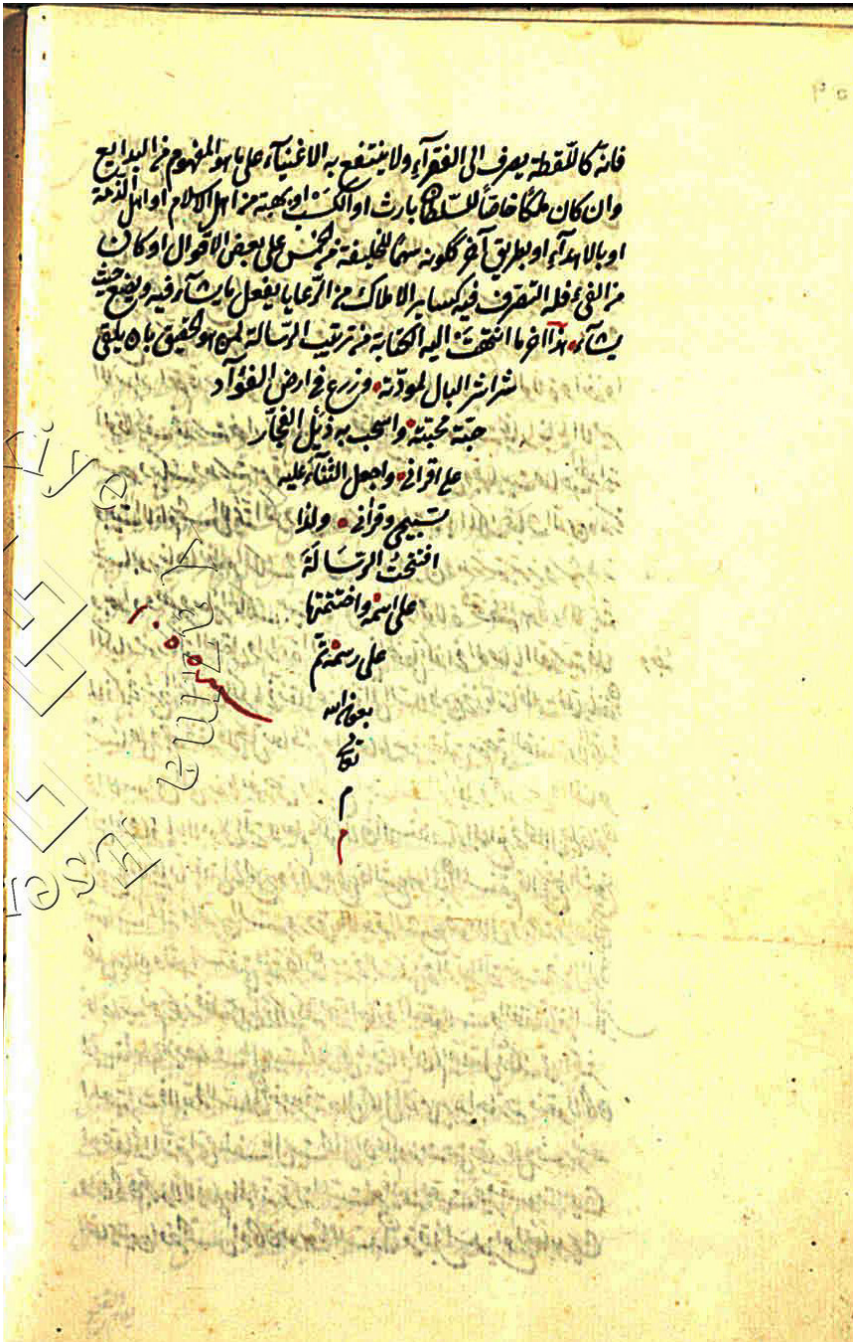 فانه كاللقطة يصرف الى الفقرآء ولا ينتفع به الاغنيآء على ما هو المفهوم من البدايع
وان كان ملكا خاصا للسلطان بارث او الكسب او بهبة من اهل الاسلام او اهل الذمة
او بالاهدآء او بطريق آخر ككونه سهما للخليفة من الخمس على بعض الاقوال او كان
من الفئ فله التصرف فيه كساير الاملاك من الرعايا يفعل ما يشآء فيه ويضع حيث
يشآء هذا اخر ما انتهت اليه الكتابة من ترتيب الرسالة لمن هو الحقيق بان يلقى
شراشر البال لمودته وزرع في ارض الفؤآد
حبة محبته واسحب به ذيل الفخار
على اقرانى واجعل الثنآء عليه
تسبيحى وقرأنى ولذا
افتتحت الرسالة
على اسمه واختتمتها
على رسمه تم
بعون الله
تعالى
م
م
سنه ١٠٥٥